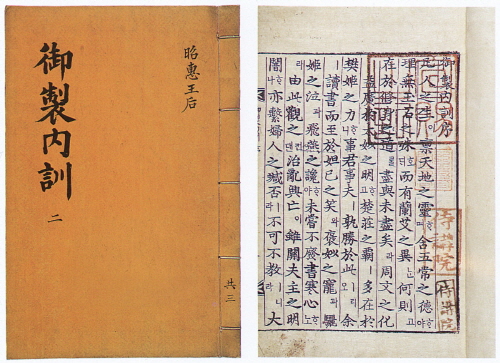 昭惠王后
御製內訓
二
共三
御製內訓序
凡人之生이禀天地之靈ᄒᆞ며含五常之德ᄒᆞ야
理無玉石之殊호ᄃᆡ而有蘭艾之異ᄂᆞᆫ何則고
在於修身之道애盡與未盡矣라周文之化
益廣於太姒之明ᄒᆞ고楚莊之霸ㅣ多在於
樊姬之力ᄒᆞ니事君事夫ㅣ孰勝於此ㅣ리오余
ㅣ讀書而至於妲己之笑와褒姒之寵과驪
姬之泣과飛燕之讒ᄒᆞ야未嘗不廢書寒心ᄒᆞ노라
由此觀之컨댄治亂興亡이雖關夫主之明
闇ᄒᆞ나亦繫婦人之臧否ㅣ라不可不敎ㅣ니라大
侍講院
侍講院